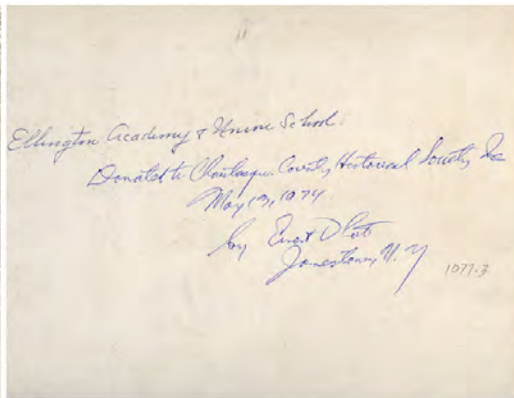 Ellington Academy & Union School.
Donated to Chautauqua County Historical Society Inc
May 13, 1974
by
Jamestown, N.Y
1077-3